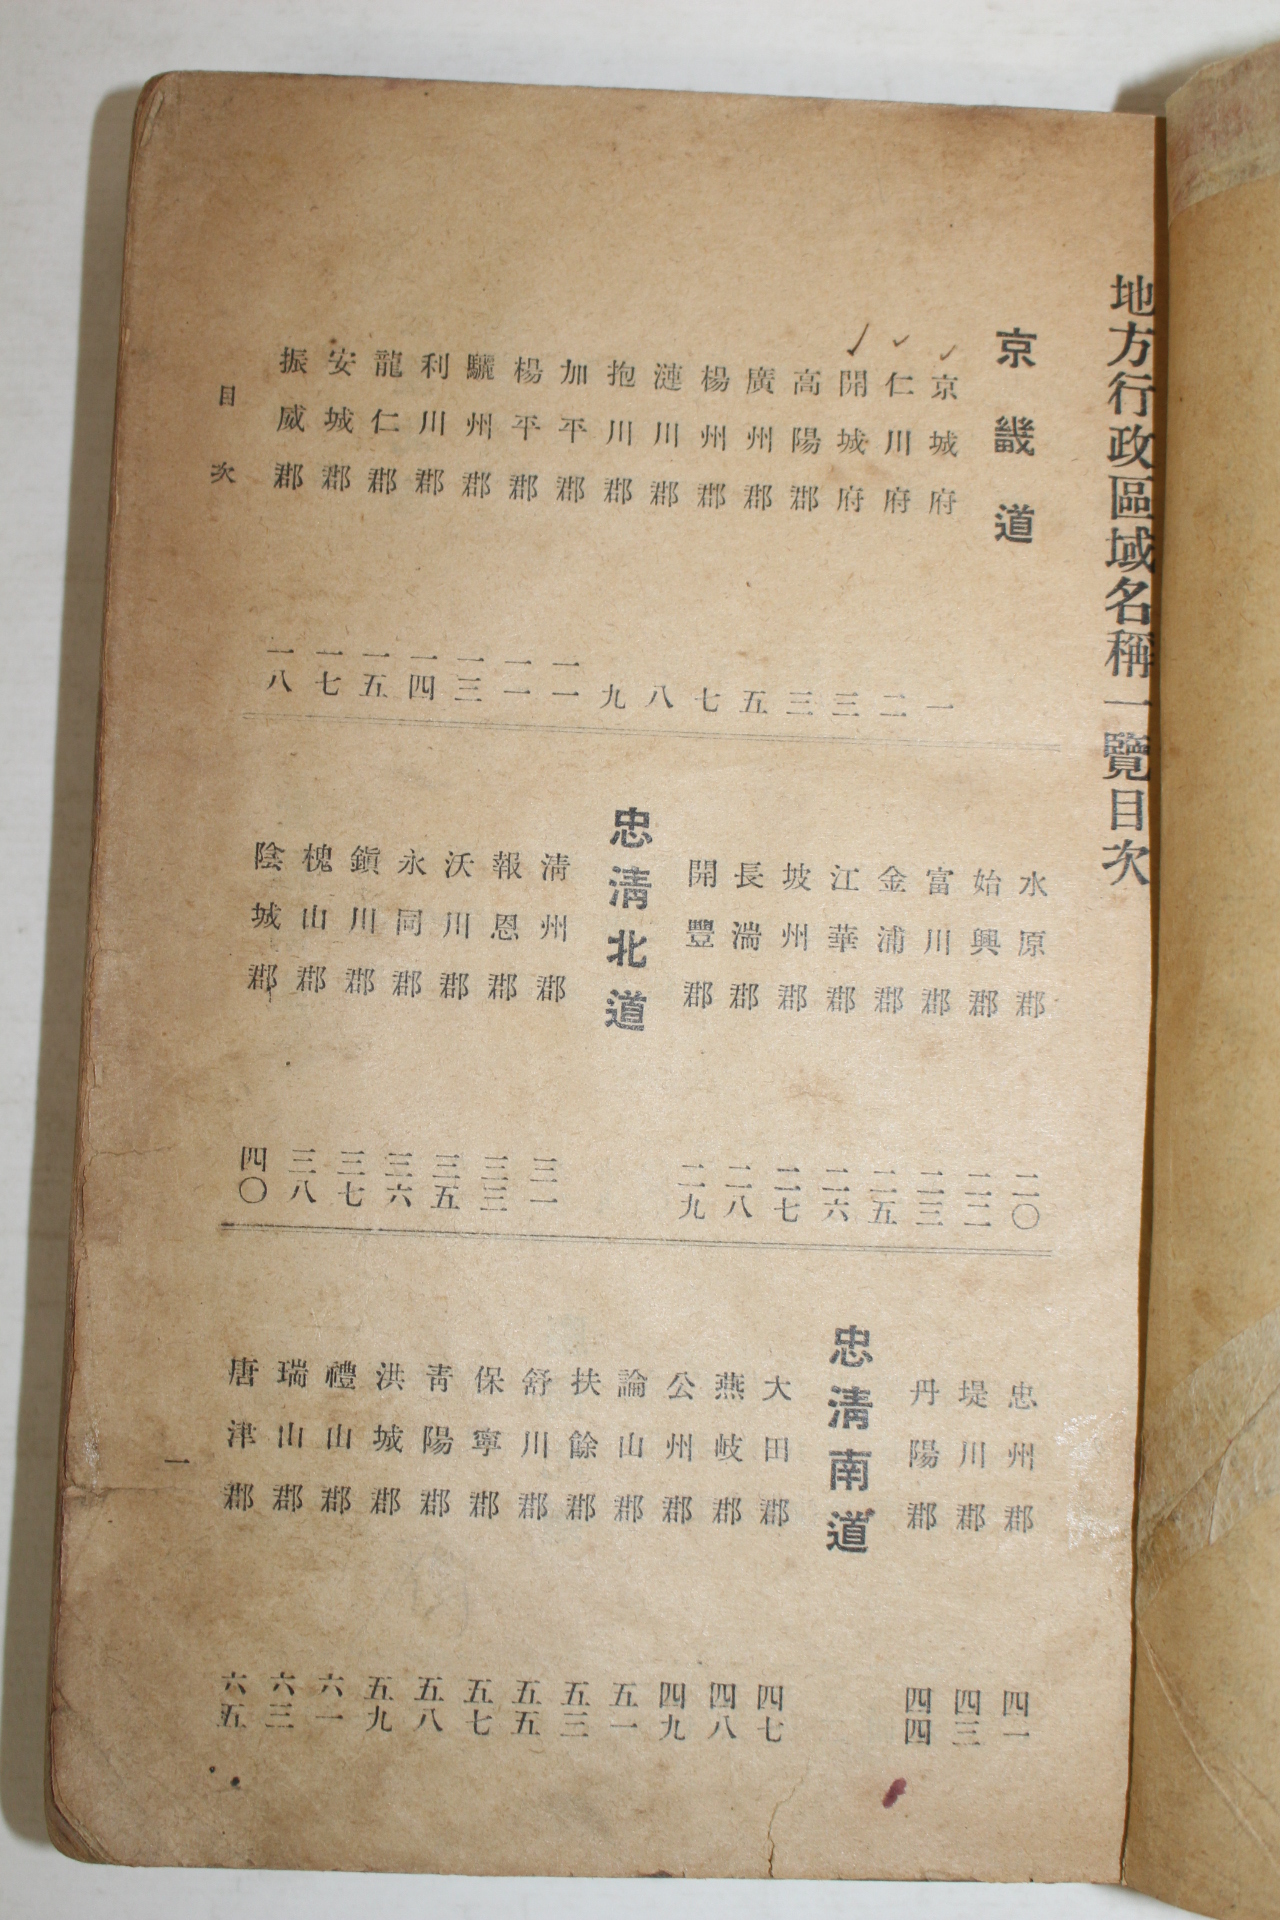 地方行政區域名稱一覽目次
京畿道
京城府 一
仁川府 二
開城府 三
高陽郡 三
廣州郡 五
楊州郡 七
漣川郡 八
抱川郡 九
加平郡 一一
楊平郡 一一
驪州郡 一三
利川郡 一四
龍仁郡 一五
安城郡 一七
振威郡 一八
水原郡 二〇
始興郡 二二
富川郡 二三
金浦郡 二五
江華郡 二六
坡州郡 二七
長湍郡 二八
開豐郡 二九
忠清北道
淸州郡 三一
報恩郡 三三
沃川郡 三五
永同郡 三六
鎭川郡 三七
槐山郡 三八
陰城郡 四〇
忠州郡 四一
堤川郡 四三
丹陽郡 四四
忠清南道
大田郡 四七
燕岐郡 四八
公州郡 四九
論山郡 五一
扶餘郡 五三
舒川郡 五五
保寧郡 五七
靑陽郡 五八
洪城郡 五九
禮山郡 六一
瑞山郡 六三
唐津郡 六五
目次
一